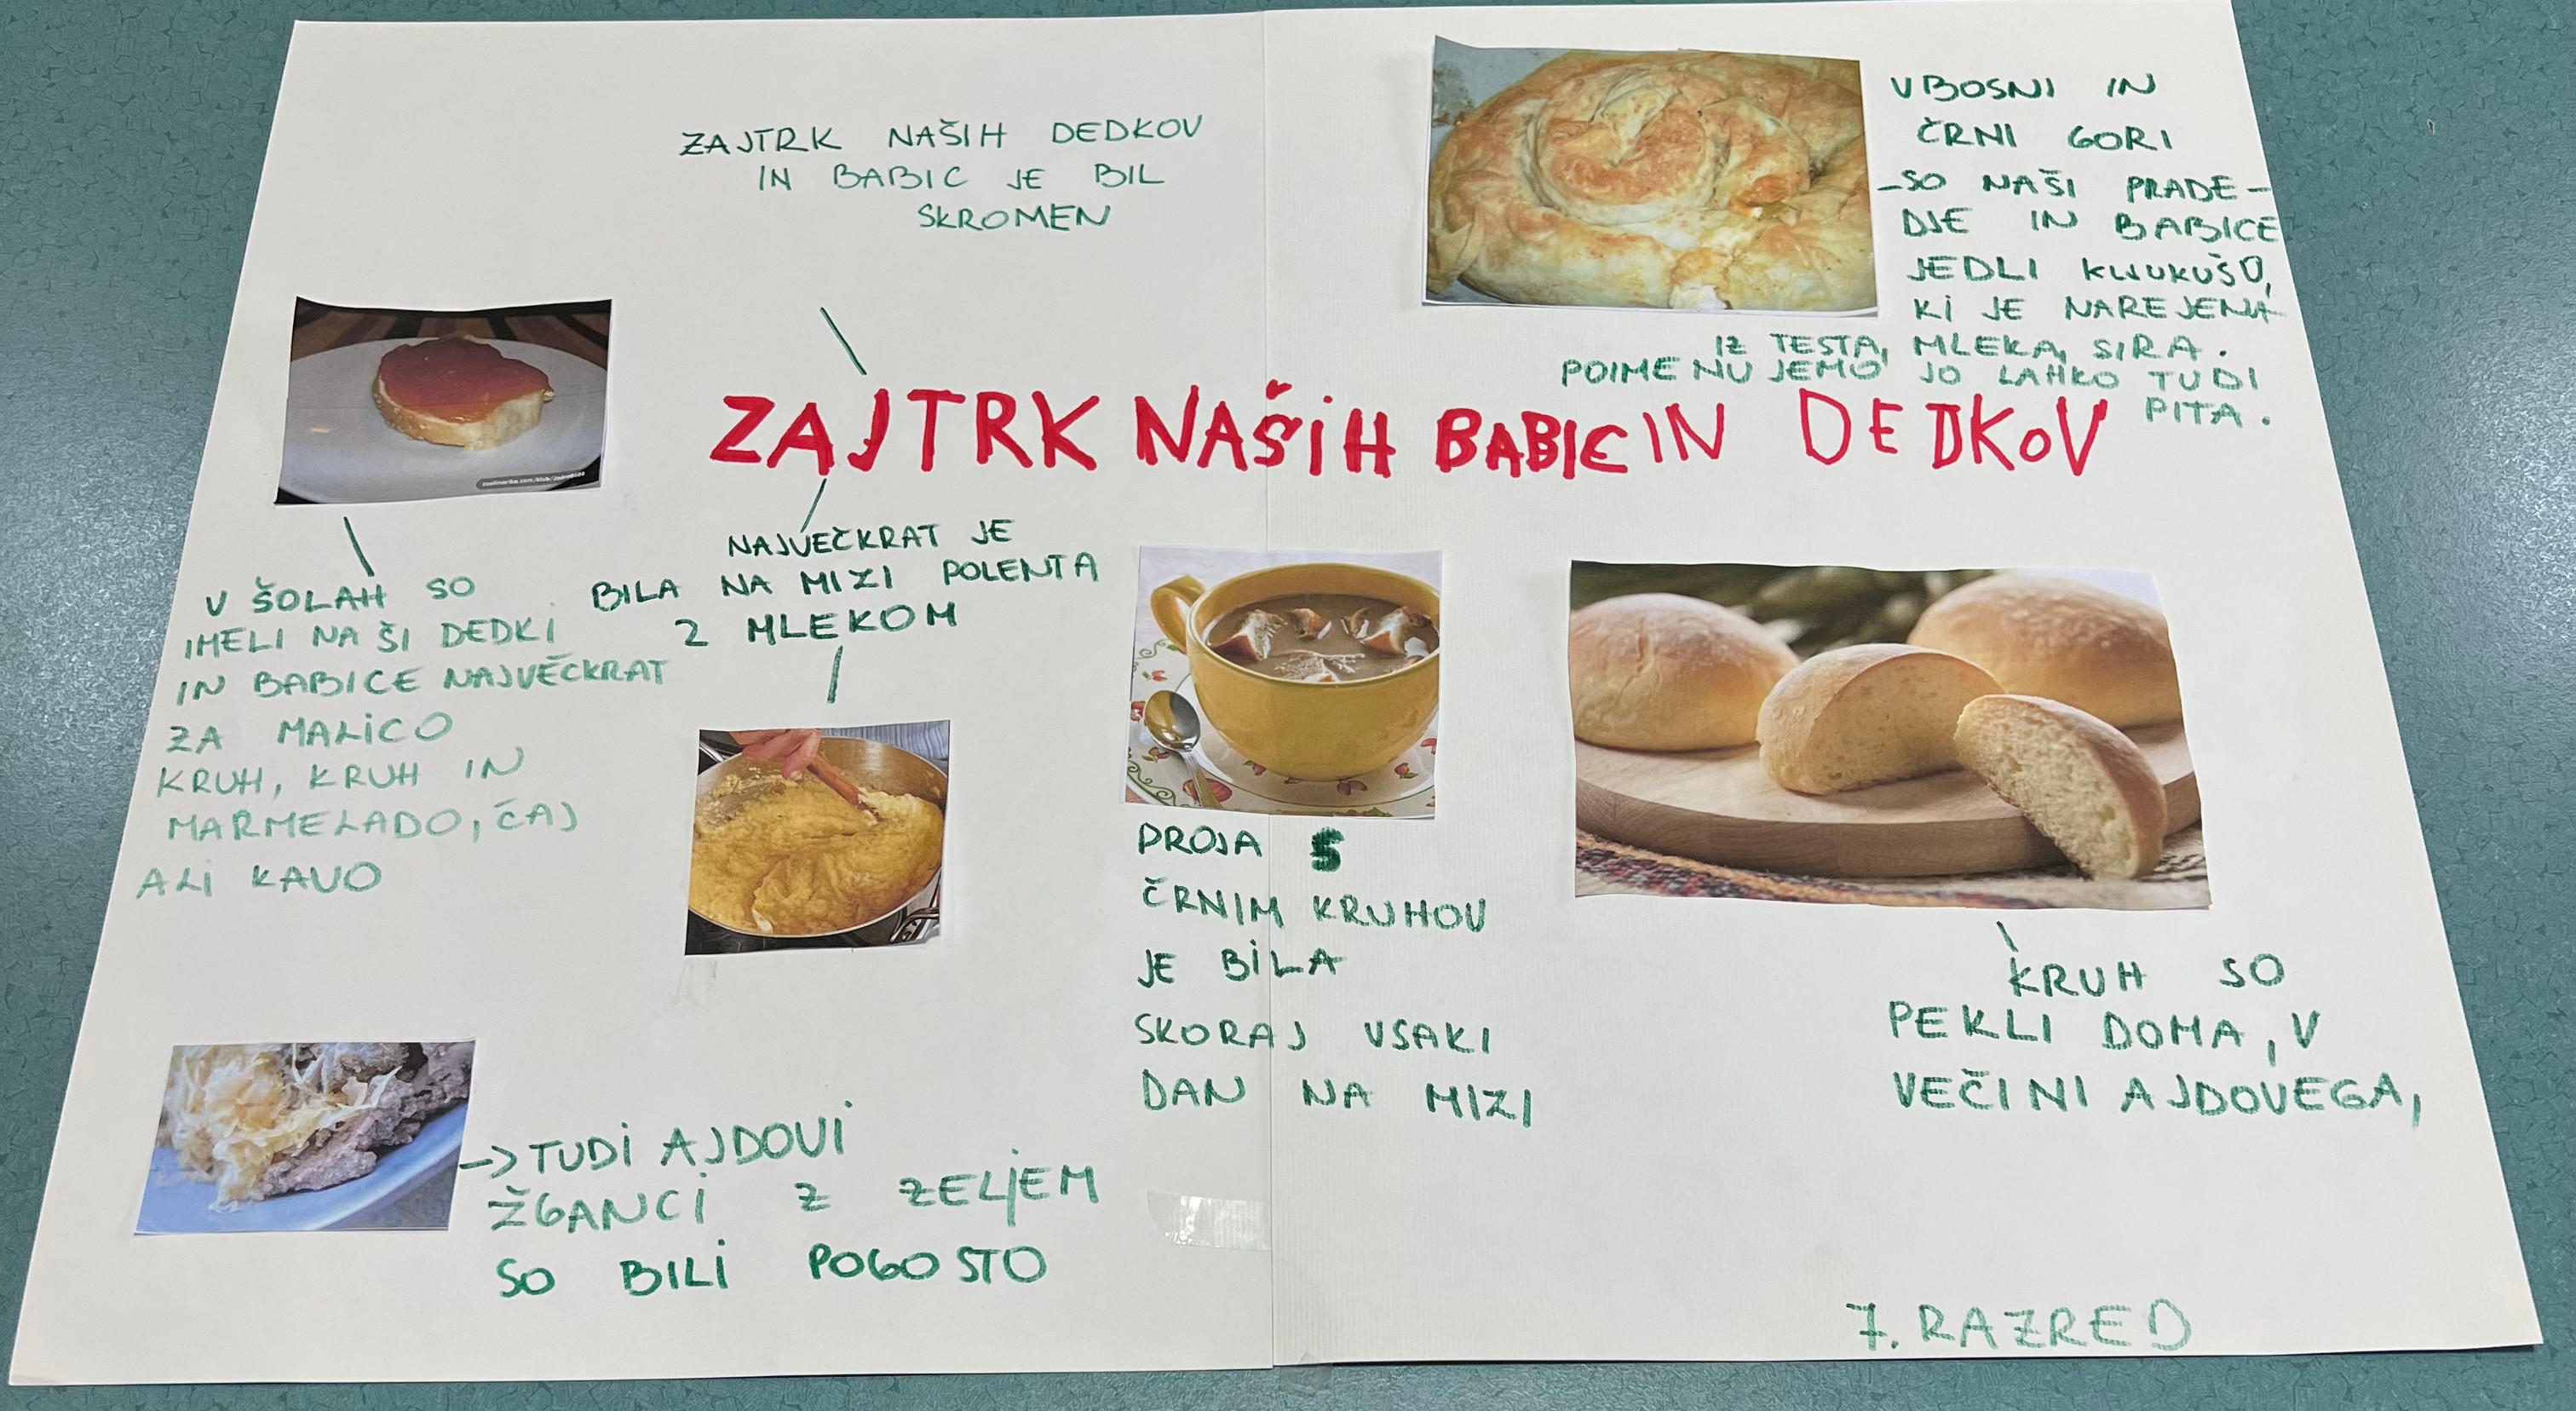 ZAJTRK NAŠIH DEDKOV
IN BABIC JE BIL
SKROMEN
V BOSNI IN
ČRNI GORI
-SO NAŠI PRADE-
DJE IN BABICE
JEDLI KLJUKUŠO,
KI JE NAREJENA
IZ TESTA, MLEKA, SIRA.
POIMENUJEMO JO LAHKO TUDI
PITA.
ZAJTRK NAŠIH BABIC IN DEDKOV
V ŠOLAH SO
IMELI NAŠI DEDKI
IN BABICE NAJVEČKRAT
ZA MALICO
KRUH, KRUH IN
MARMELADO, ČAJ
ALI KAVO
NAJVEČKRAT JE
BILA NA MIZI POLENTA
Z MLEKOM
PROJA S
ČRNIM KRUHOV
JE BILA
SKORAJ VSAKI
DAN NA MIZI
KRUH SO
PEKLI DOMA, V
VEČINI AJDOVEGA,
->TUDI AJDOVI
ŽGANCI Z ZELJEM
SO BILI POGOSTO
7. RAZRED